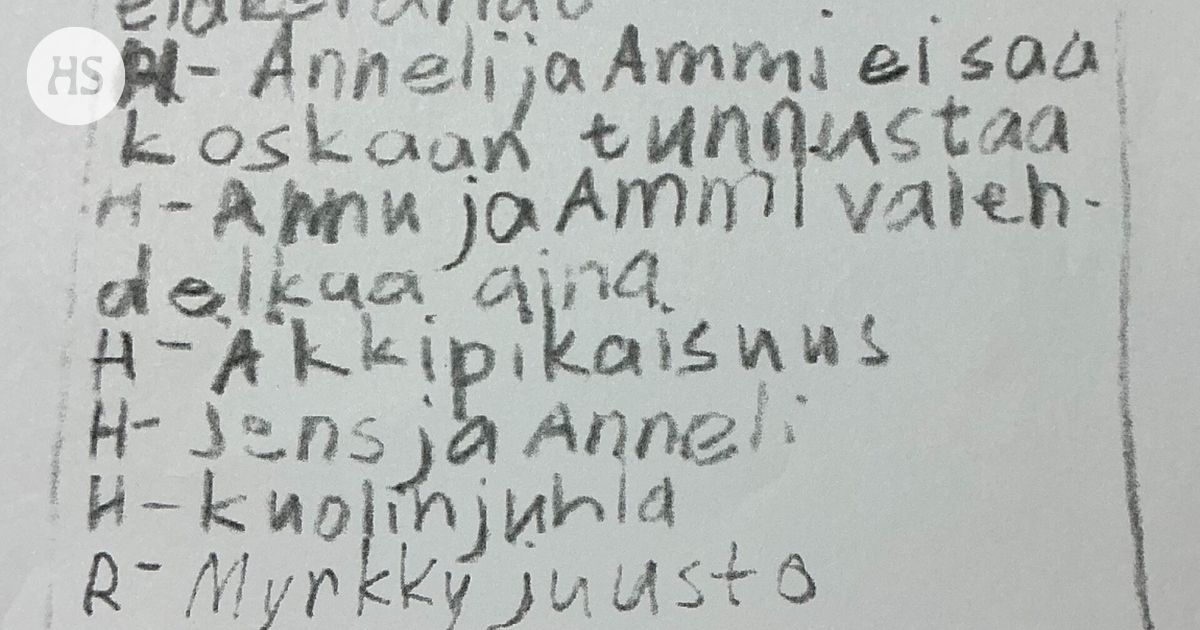 HS
H- Anneli ja Ammi ei saa
koskaan tunnustaa
H- Ammu ja Ammi valeh-
delkaa aina
H- Äkkipikaisuus
H- Jens ja Anneli
H- kuolinjuhla
R- Myrkky juusto